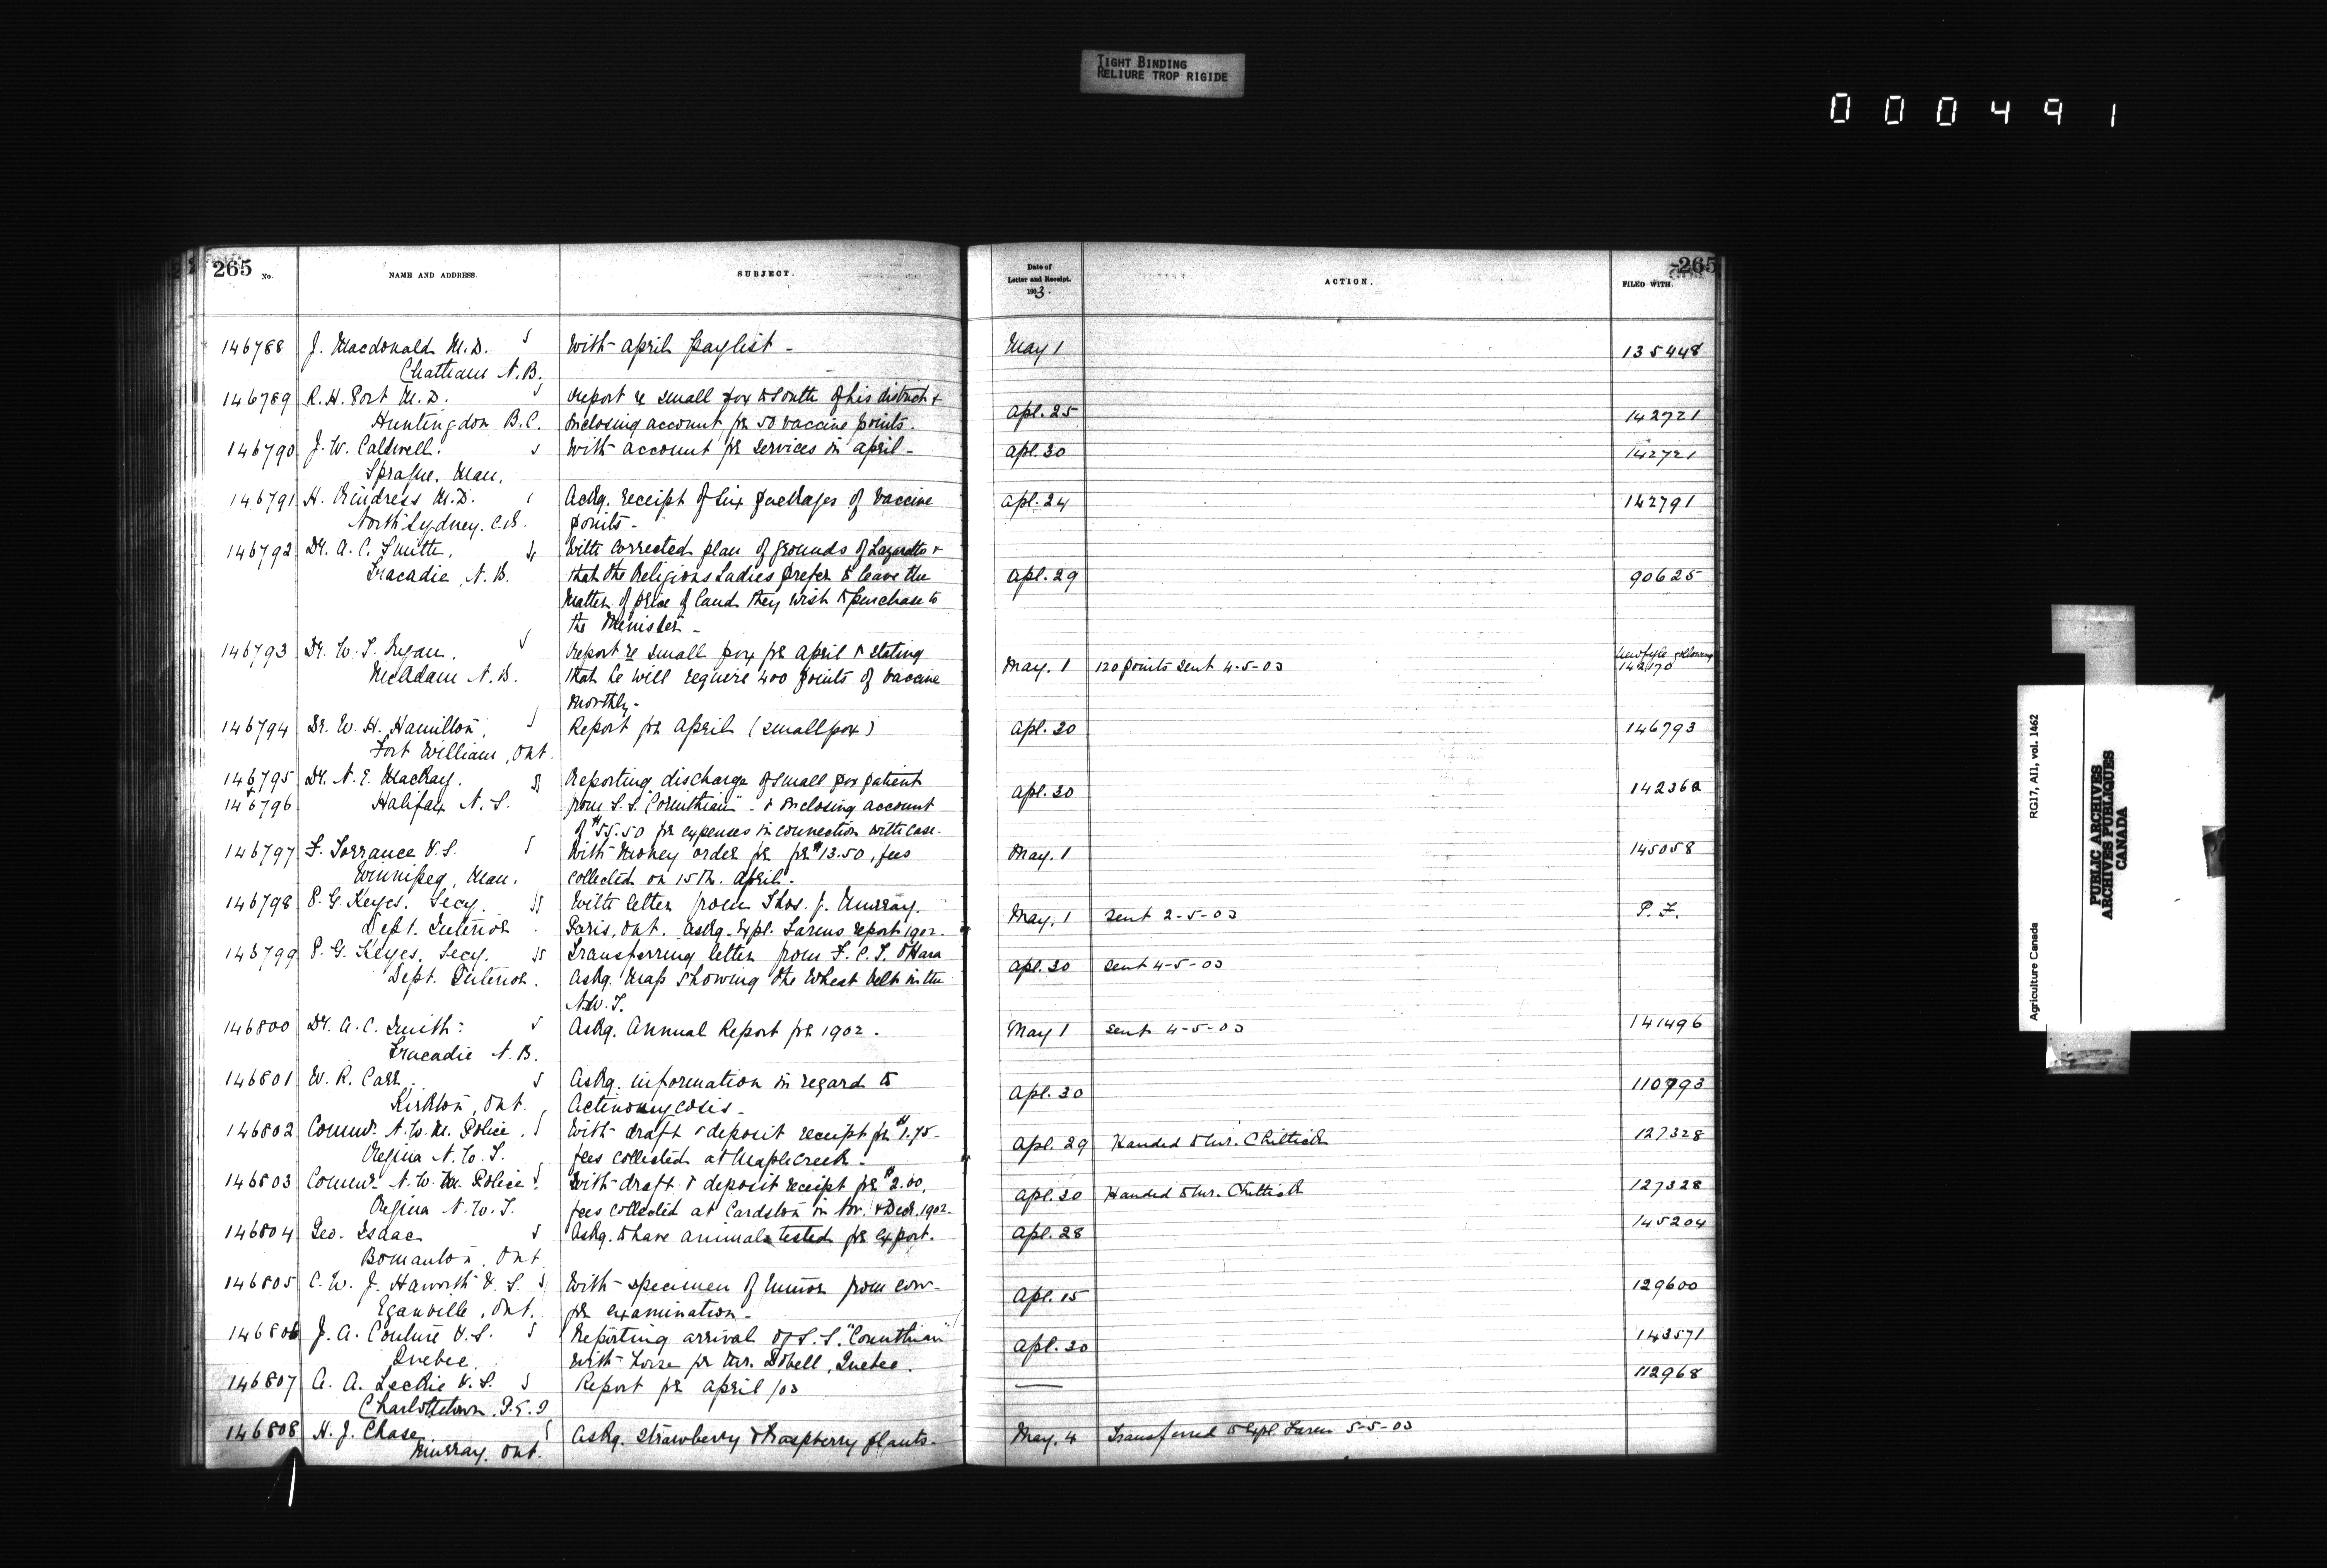 TIGHT BINDING
RELIURE TROP RIGIDE
000491
265 No. NAME AND ADDRESS. SUBJECT. Date of Letter and Receipt. 1903. ACTION. FILED WITH. 265
146788 J. Macdonald M.D. With April paylist - May 1 135448
Chatham N.B.
146789 R.H. Port M.D. Report re small pox to South of his district &
Huntingdon B.C. enclosing account for 50 vaccine points. Apl. 25 142721
146790 J.W. Caldwell. With account for services in April - Apl. 30 142721
Sprague, Man.
146791 H. Rindress M.D. Ackg. receipt of six packages of vaccine Apl. 24 142791
North Sydney. C.B. points -
146792 Dr. A.C. Smith. With corrected plan of grounds of Lazaretto &
Tracadie, N.B. that the Religious Ladies prefer to leave the Apl. 29 90625
matter of price of land they wish to purchase to
the Minister -
146793 Dr. W.S. Ryan. Report re small pox for April & stating
McAdam N.B. that he will require 400 points of vaccine May. 1 120 points sent 4-5-03 142170
monthly -
146794 Dr. W.H. Hamilton, Report for April (smallpox) Apl. 30 146793
Fort William, Ont.
146795 Dr. N.E. MacKay. Reporting discharge of small pox patient
146796 Halifax N.S. from S.S. "Corinthian" & enclosing account Apl. 30
of $55.50 for expenses in connection with case.
146797 F. Torrance V.S. With money order for for $13.50, fees May. 1 145058
Winnipeg, Man. collected on 15th. April -
146798 P.G. Keyes, Secy. With letter from Thos. J. Murray. P.F.
Dept. Interior. Paris, Ont. askg. Expl. Farms report 1902. May. 1 Sent 2-5-03
146799 P.G. Keyes, Secy. Transferring letter from F.C.T. O'Hara
Dept. Interior. askg. map showing the wheat belt in the Apl. 30 Sent 4-5-03
N.W.T.
146800 Dr. A.C. Smith: Askg. Annual Report for 1902. May 1 Sent 4-5-03 141496
Tracadie N.B.
146801 W.R. Carr Askg. information in regard to 110993
Kirkton, Ont. Actinomycosis - Apl. 30
146802 Commr. N.W.M. Police. With draft & deposit receipt for $1.75 - 127328
Regina N.W.T. fees collected at Maple Creek - Apl. 29 Handed to Mr. Chittick
146803 Commr. N.W.M. Police. With draft & deposit receipt for $2.00, 127328
Regina N.W.T. fees collected at Cardston in Nov. & Decr. 1902. Apl. 30 Handed to Mr. Chittick
146804 Geo. Isaac Askg. to have animals tested for export. Apl. 28 145204
Bomanton, Ont.
146805 C.W.J. Haworth V.S. With specimen of tumor from cow - 129600
Eganville, Ont. for examination - Apl. 15
146806 J.A. Couture V.S. Reporting arrival of S.S. "Corinthian" 143571
Quebec. with horse for Mr. Dobell, Quebec. Apl. 30
146807 A.A. Leckie V.S. Report for April /03 — 112968
Charlottetown, P.E.I
146808 H.J. Chase, Askg. strawberry & raspberry plants - May. 4 Transferred to Expl. Farm 5-5-03
Murray, Ont.
RG17, A11, vol. 1462
Agriculture Canada
PUBLIC ARCHIVES
ARCHIVES PUBLIQUES
CANADA